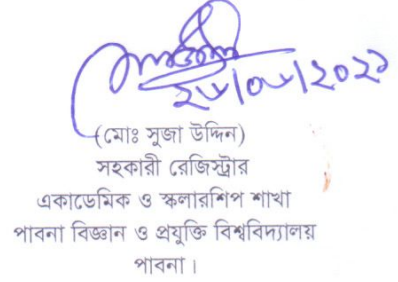 ২৮/০৮/২০২১
(মোঃ সুজা উদ্দিন)
সহকারী রেজিস্ট্রার
একাডেমিক ও স্কলারশিপ শাখা
পাবনা বিজ্ঞান ও প্রযুক্তি বিশ্ববিদ্যালয়
পাবনা।